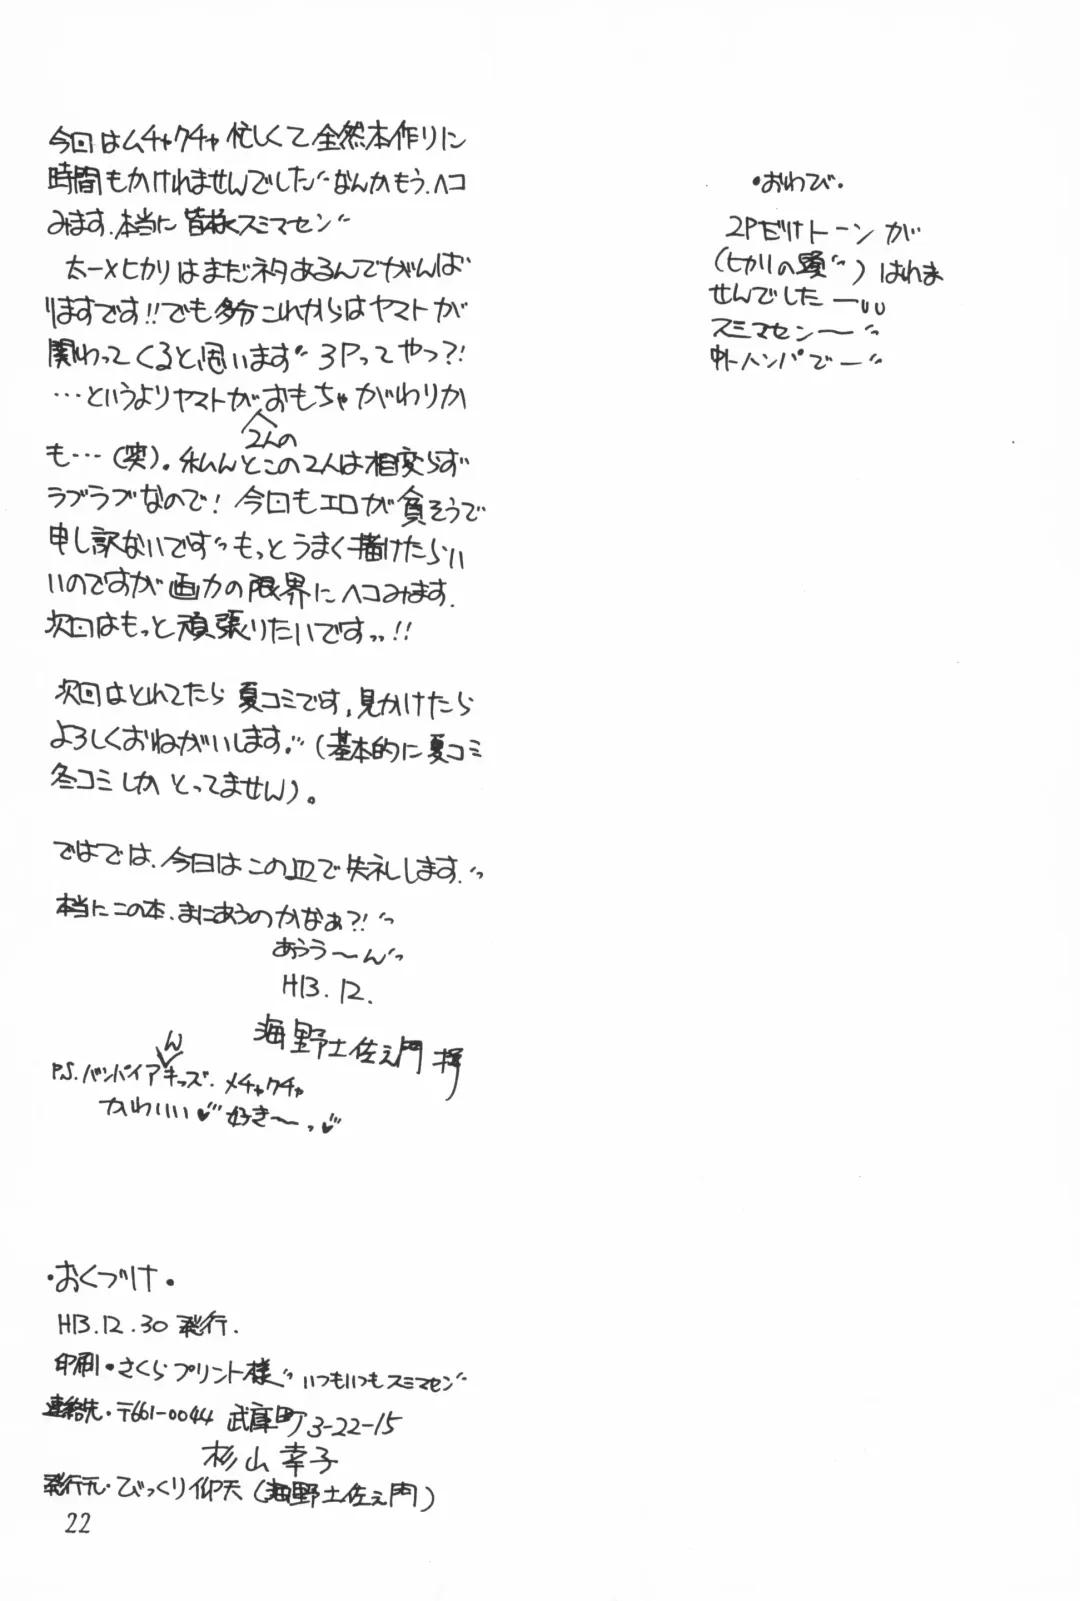 今回はムチャクチャ忙しくて全然本作りに
時間もかけれませんでした〃なんかもう.ヘコ
みます.本当に皆様スミマセン〃
太一×ヒカリはまだネタあるんでがんば
りますです!!でも多分これからはヤマトが
関わってくると思います〃3Pってやつ?!
…というよりヤマトが2人のおもちゃがわりか
も…(笑)。私んとこの2人は相変らず
ラブラブなので!今回もエロが貧そうで
申し訳ないです〃もっとうまく描けたらい
いのですが画力の限界にヘコみます.
次回はもっと頑張りたいですッ!!
次回はとれてたら夏コミです,見かけたら
よろしくおねがいします〃(基本的に夏コミ
冬コミしかとってません)。
ではでは.今日はこの辺で失礼します.〃
本当にこの本.まにあうのかなぁ?!〃
あうう〜ん〃
H13.12.
海野土佐ェ門 拝
P.S.バンパイアんキッズ.メチャクチャ
かわいい♥〃好き〜っ♥〃
・おくづけ・
H13.12.30 発行.
印刷・さくらプリント様〃いつもいつもスミマセン〃
連絡先・〒661-0044 武庫町3-22-15
杉山幸子
発行元・びっくり仰天(海野土佐ェ門)
22
・おわび・
2Pだけトーンが
(ヒカリの頭〃)はれま
せんでしたー
スミマセン〜〃
ハンパでー〃